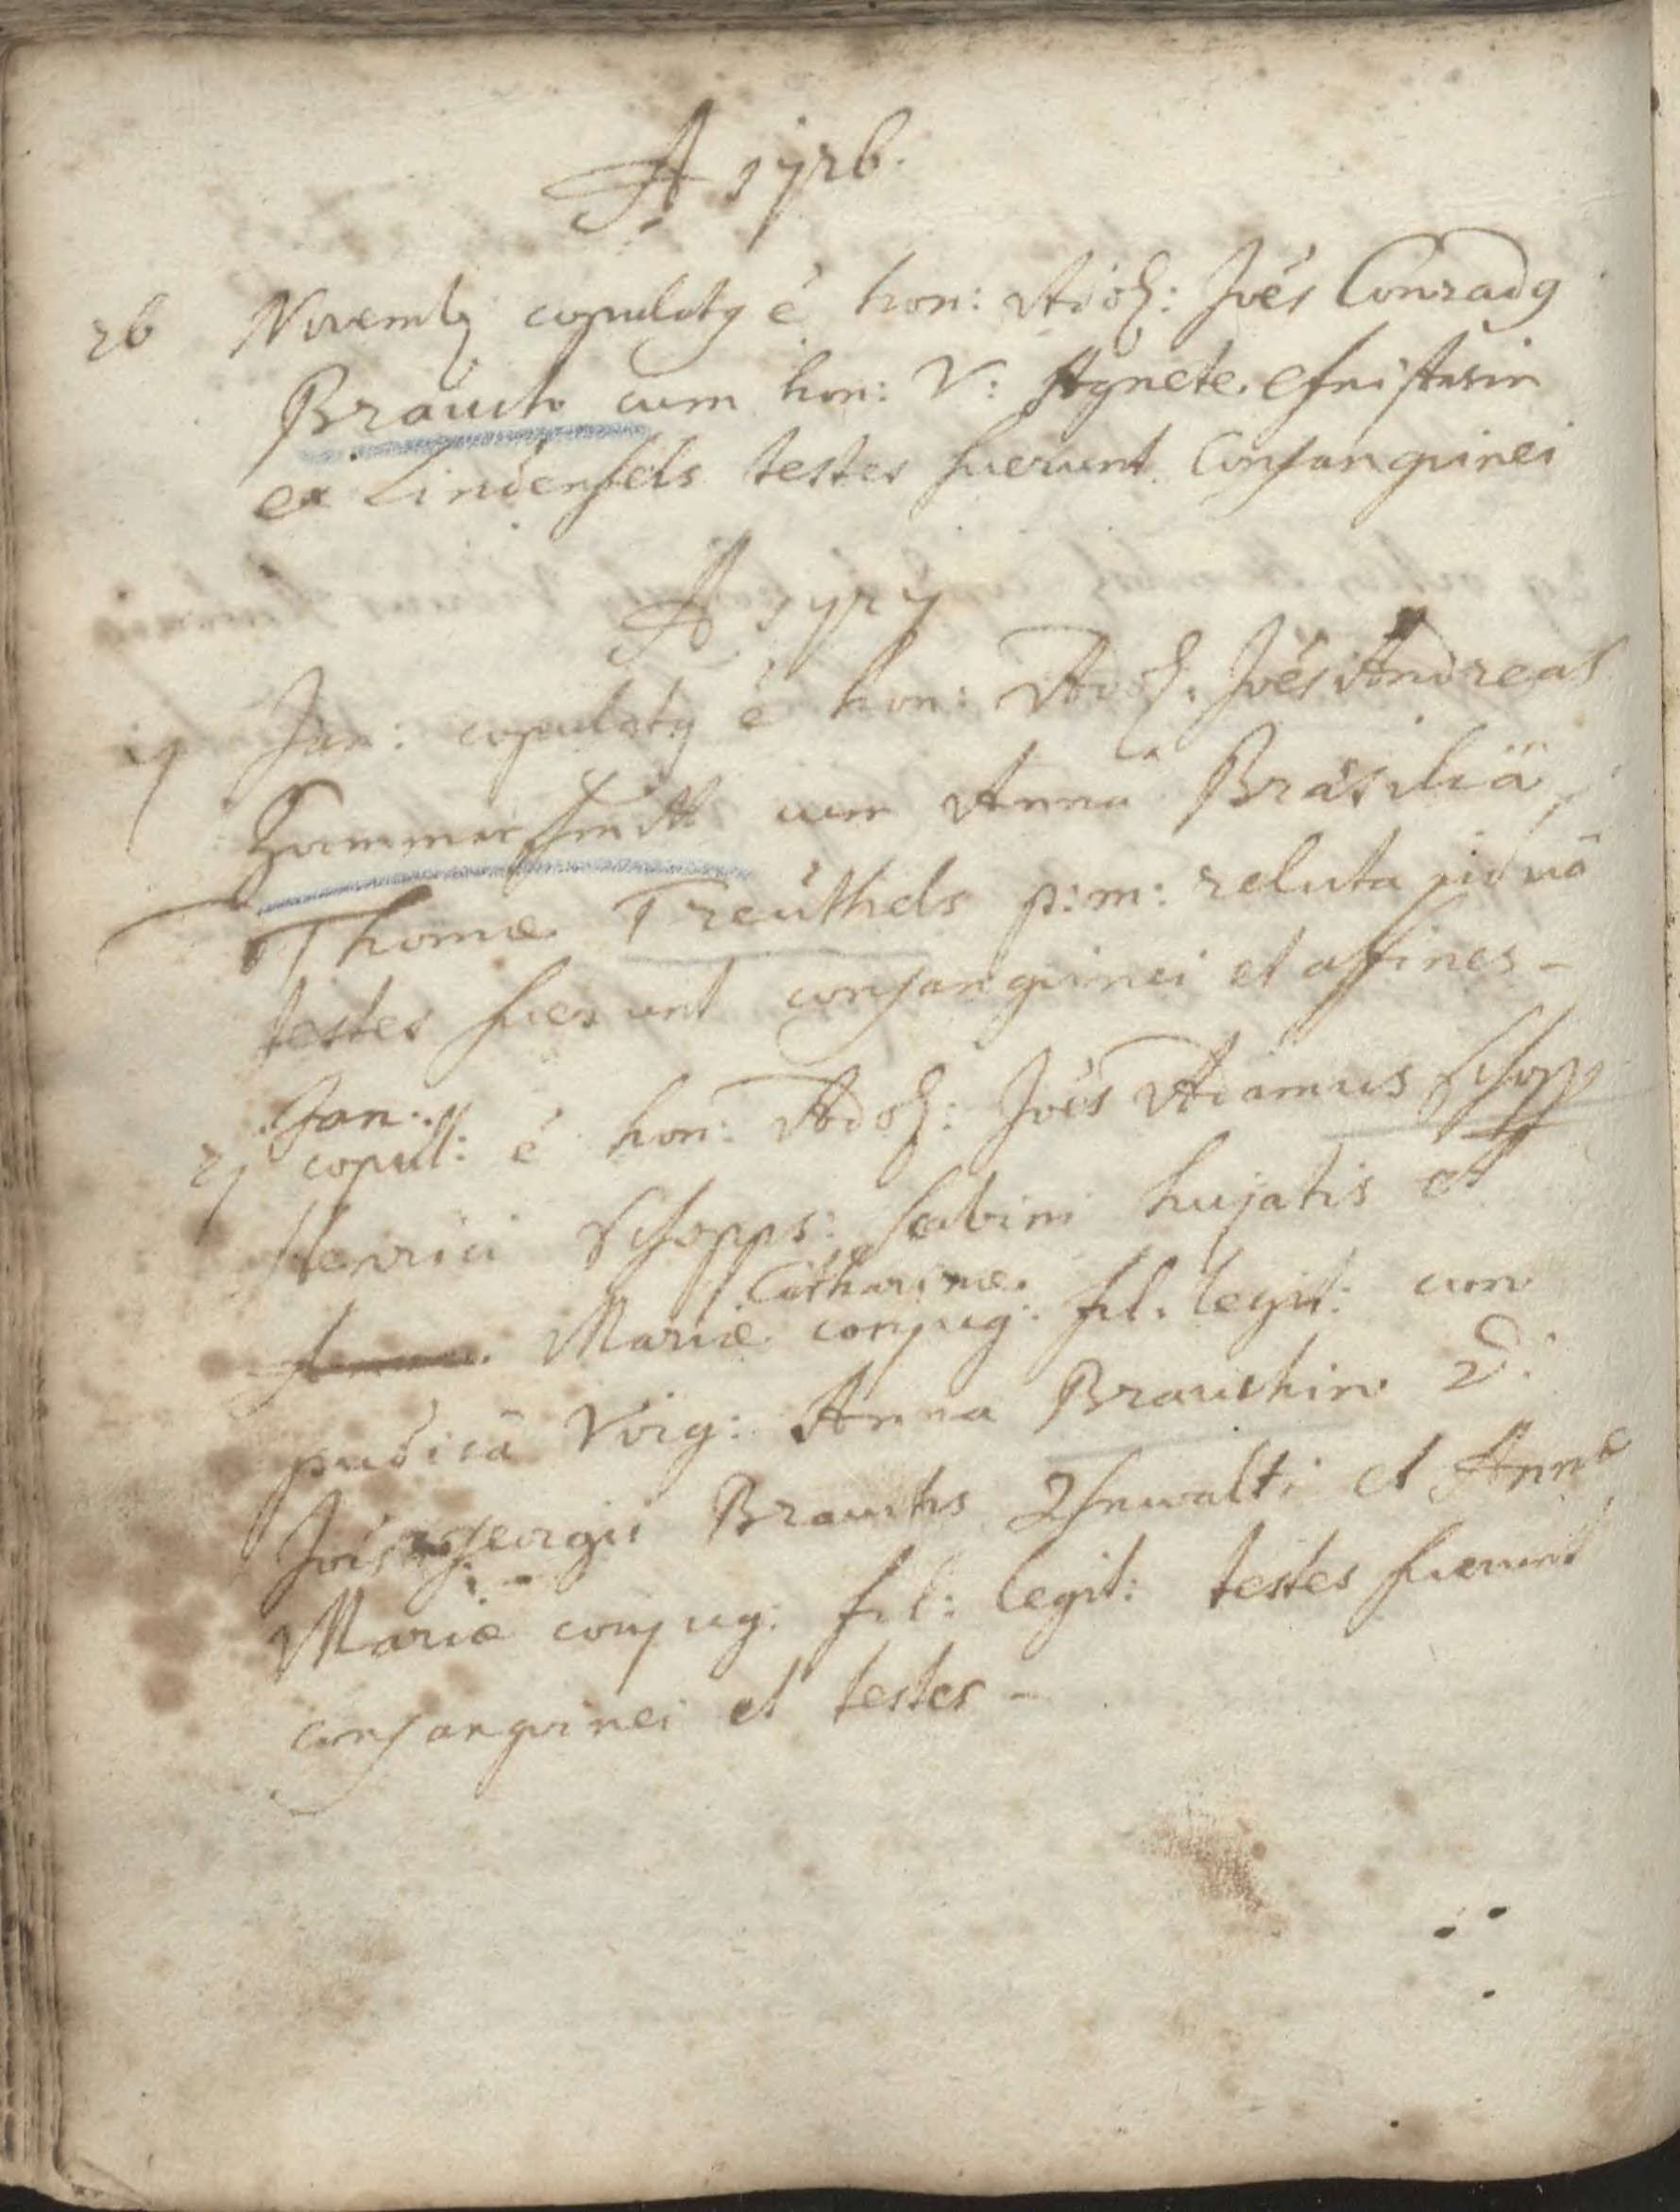 A 1726.
26 Novemb copulatg ē hon: Adol: Joēs Conradg
Brauch cum hon: V: Agnete
ex Lindenfels testes fuerunt Consanguinei
A 1727
Jan: copulatg ē hon: Adol: Joēs Andreas
cum Annâ Brasiliä
Thomæ Treüthels p:m: relicta viduâ
testes fuerunt consanguinei et affines -
Jan:
27 copul: ē hon: Adol: Joēs Adamus Schopp
Henrici Schopps: Scabini hujatis et
Catharinæ
Mariæ conjug: fil: legit: cum
pudicâ Virg: Anna Brauchin
Georgii Brauchs et Annæ
Mariæ conjug: fil: legit: testes fuerunt
consanguinei et testes -